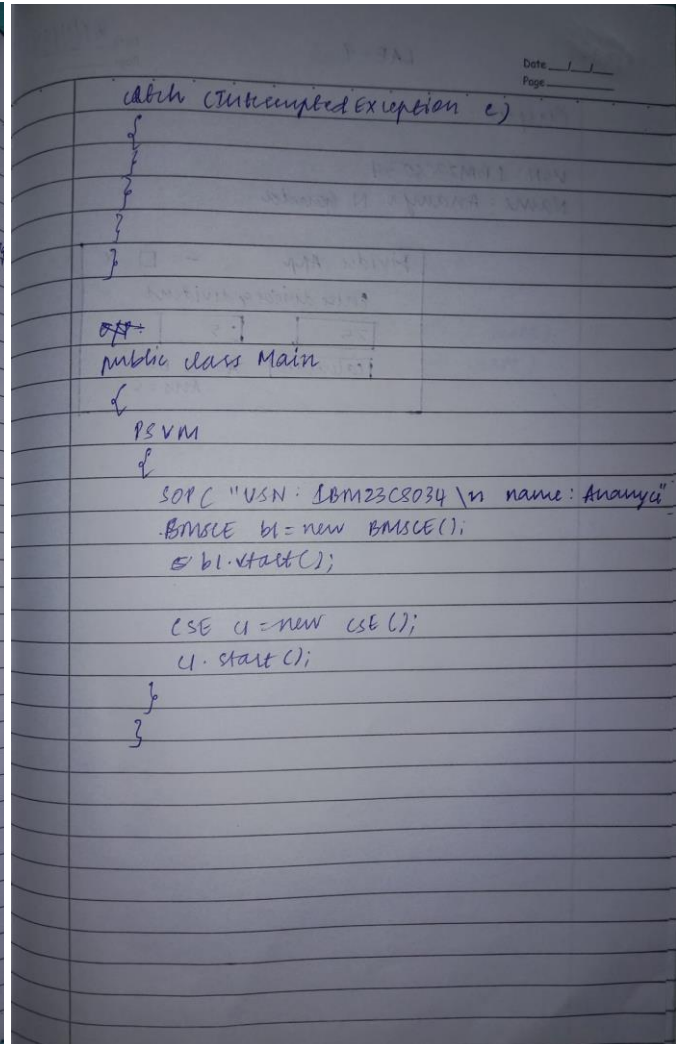 Date __/__/__
Page
catch (InterruptedException e)
{
}
}
}
}
public class Main
{
PSVM
{
SOP( "USN: 1BM23CS034 \n name: Ananya"
BMSCE b1 = new BMSCE();
b1.start();
CSE c1 = new CSE();
c1.start();
}
}